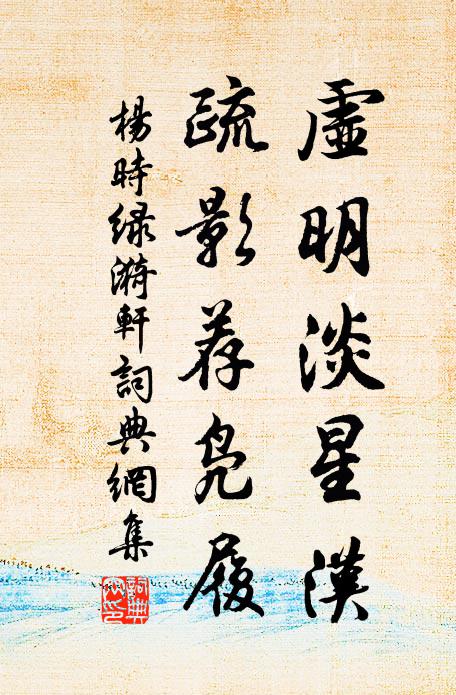 虛明淡星漢
疏影荐鳧履
楊時綠漪軒詞典網集